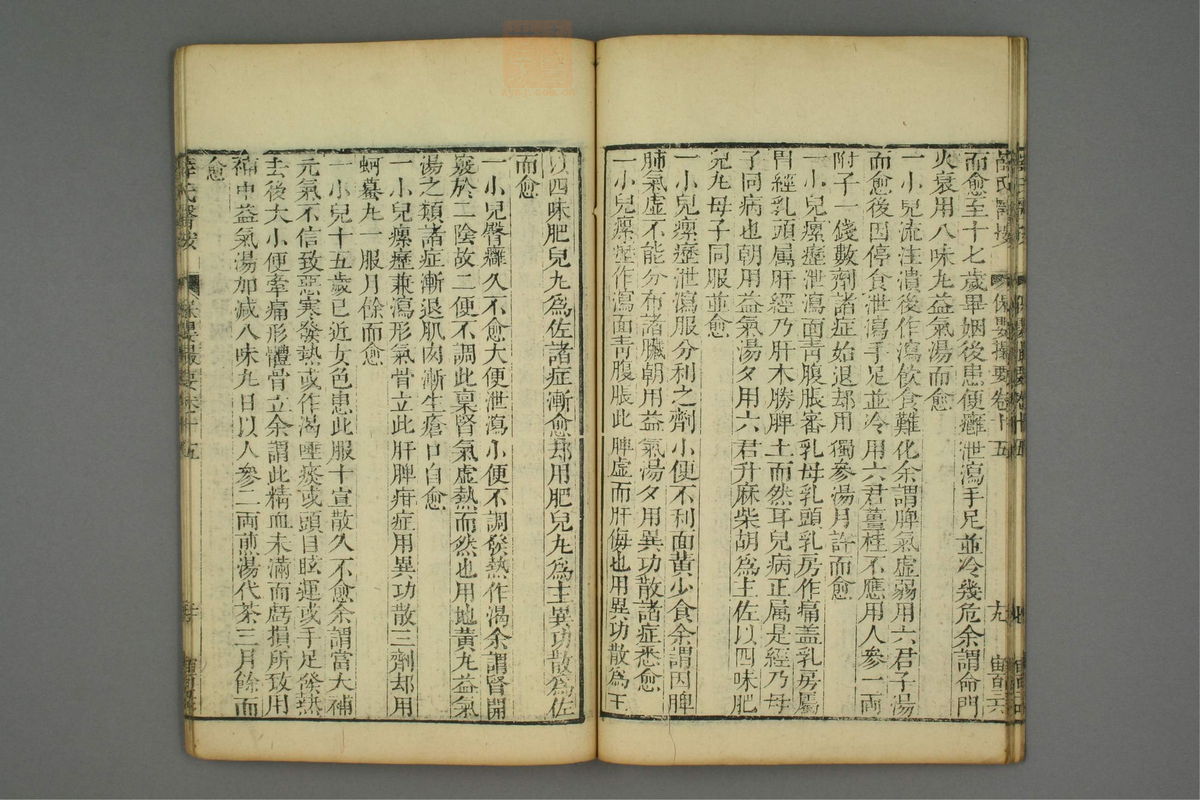 薛氏醫按 保嬰撮要卷十五 十九
而愈至十七歲畢姻後患便癰泄瀉手足並冷幾危余謂命門
火衰用八味丸益氣湯而愈
一小兒流注潰後作瀉飲食難化余謂脾氣虛弱用六君子湯
而愈後因停食泄瀉手足並冷用六君薑桂不應用人參一兩
附子一錢數劑諸症始退却用獨參湯月許而愈
一小兒瘰癧泄瀉面青腹脹審乳母乳頭乳房作痛盖乳房屬
胃經乳頭屬肝經乃肝木勝脾土而然耳兒病正屬是經乃母
子同病也朝用益氣湯夕用六君升麻柴胡爲主佐以四味肥
兒丸母子同服並愈
一小兒瘰癧泄瀉服分利之劑小便不利面黃少食余謂因脾
肺氣虛不能分布諸臟朝用益氣湯夕用異功散諸症悉愈
一小兒瘰癧作瀉面青腹脹此脾虛而肝侮也用異功散爲主
以四味肥兒丸爲佐諸症漸愈却用肥兒丸爲主異功散爲佐
而愈
一小兒臀癰久不愈大便泄瀉小便不調發熱作渴余謂腎開
竅於二陰故二便不調此稟腎氣虛熱而然也用地黃丸益氣
湯之類諸症漸退肌肉漸生瘡口自愈
一小兒瘰癧兼瀉形氣骨立此肝脾疳症用異功散三劑却用
蚵蟇丸一服月餘而愈
一小兒十五歲已近女色患此服十宣散久不愈余謂當大補
元氣不信致惡寒發熱或作渴唾痰或頭目眩運或手足倏熱
去後大小便牽痛形體骨立余謂此精血未滿而虧損所致用
補中益氣湯加减八味丸日以人參二兩煎湯代茶三月餘而
愈
薛氏醫按 保嬰撮要卷十五